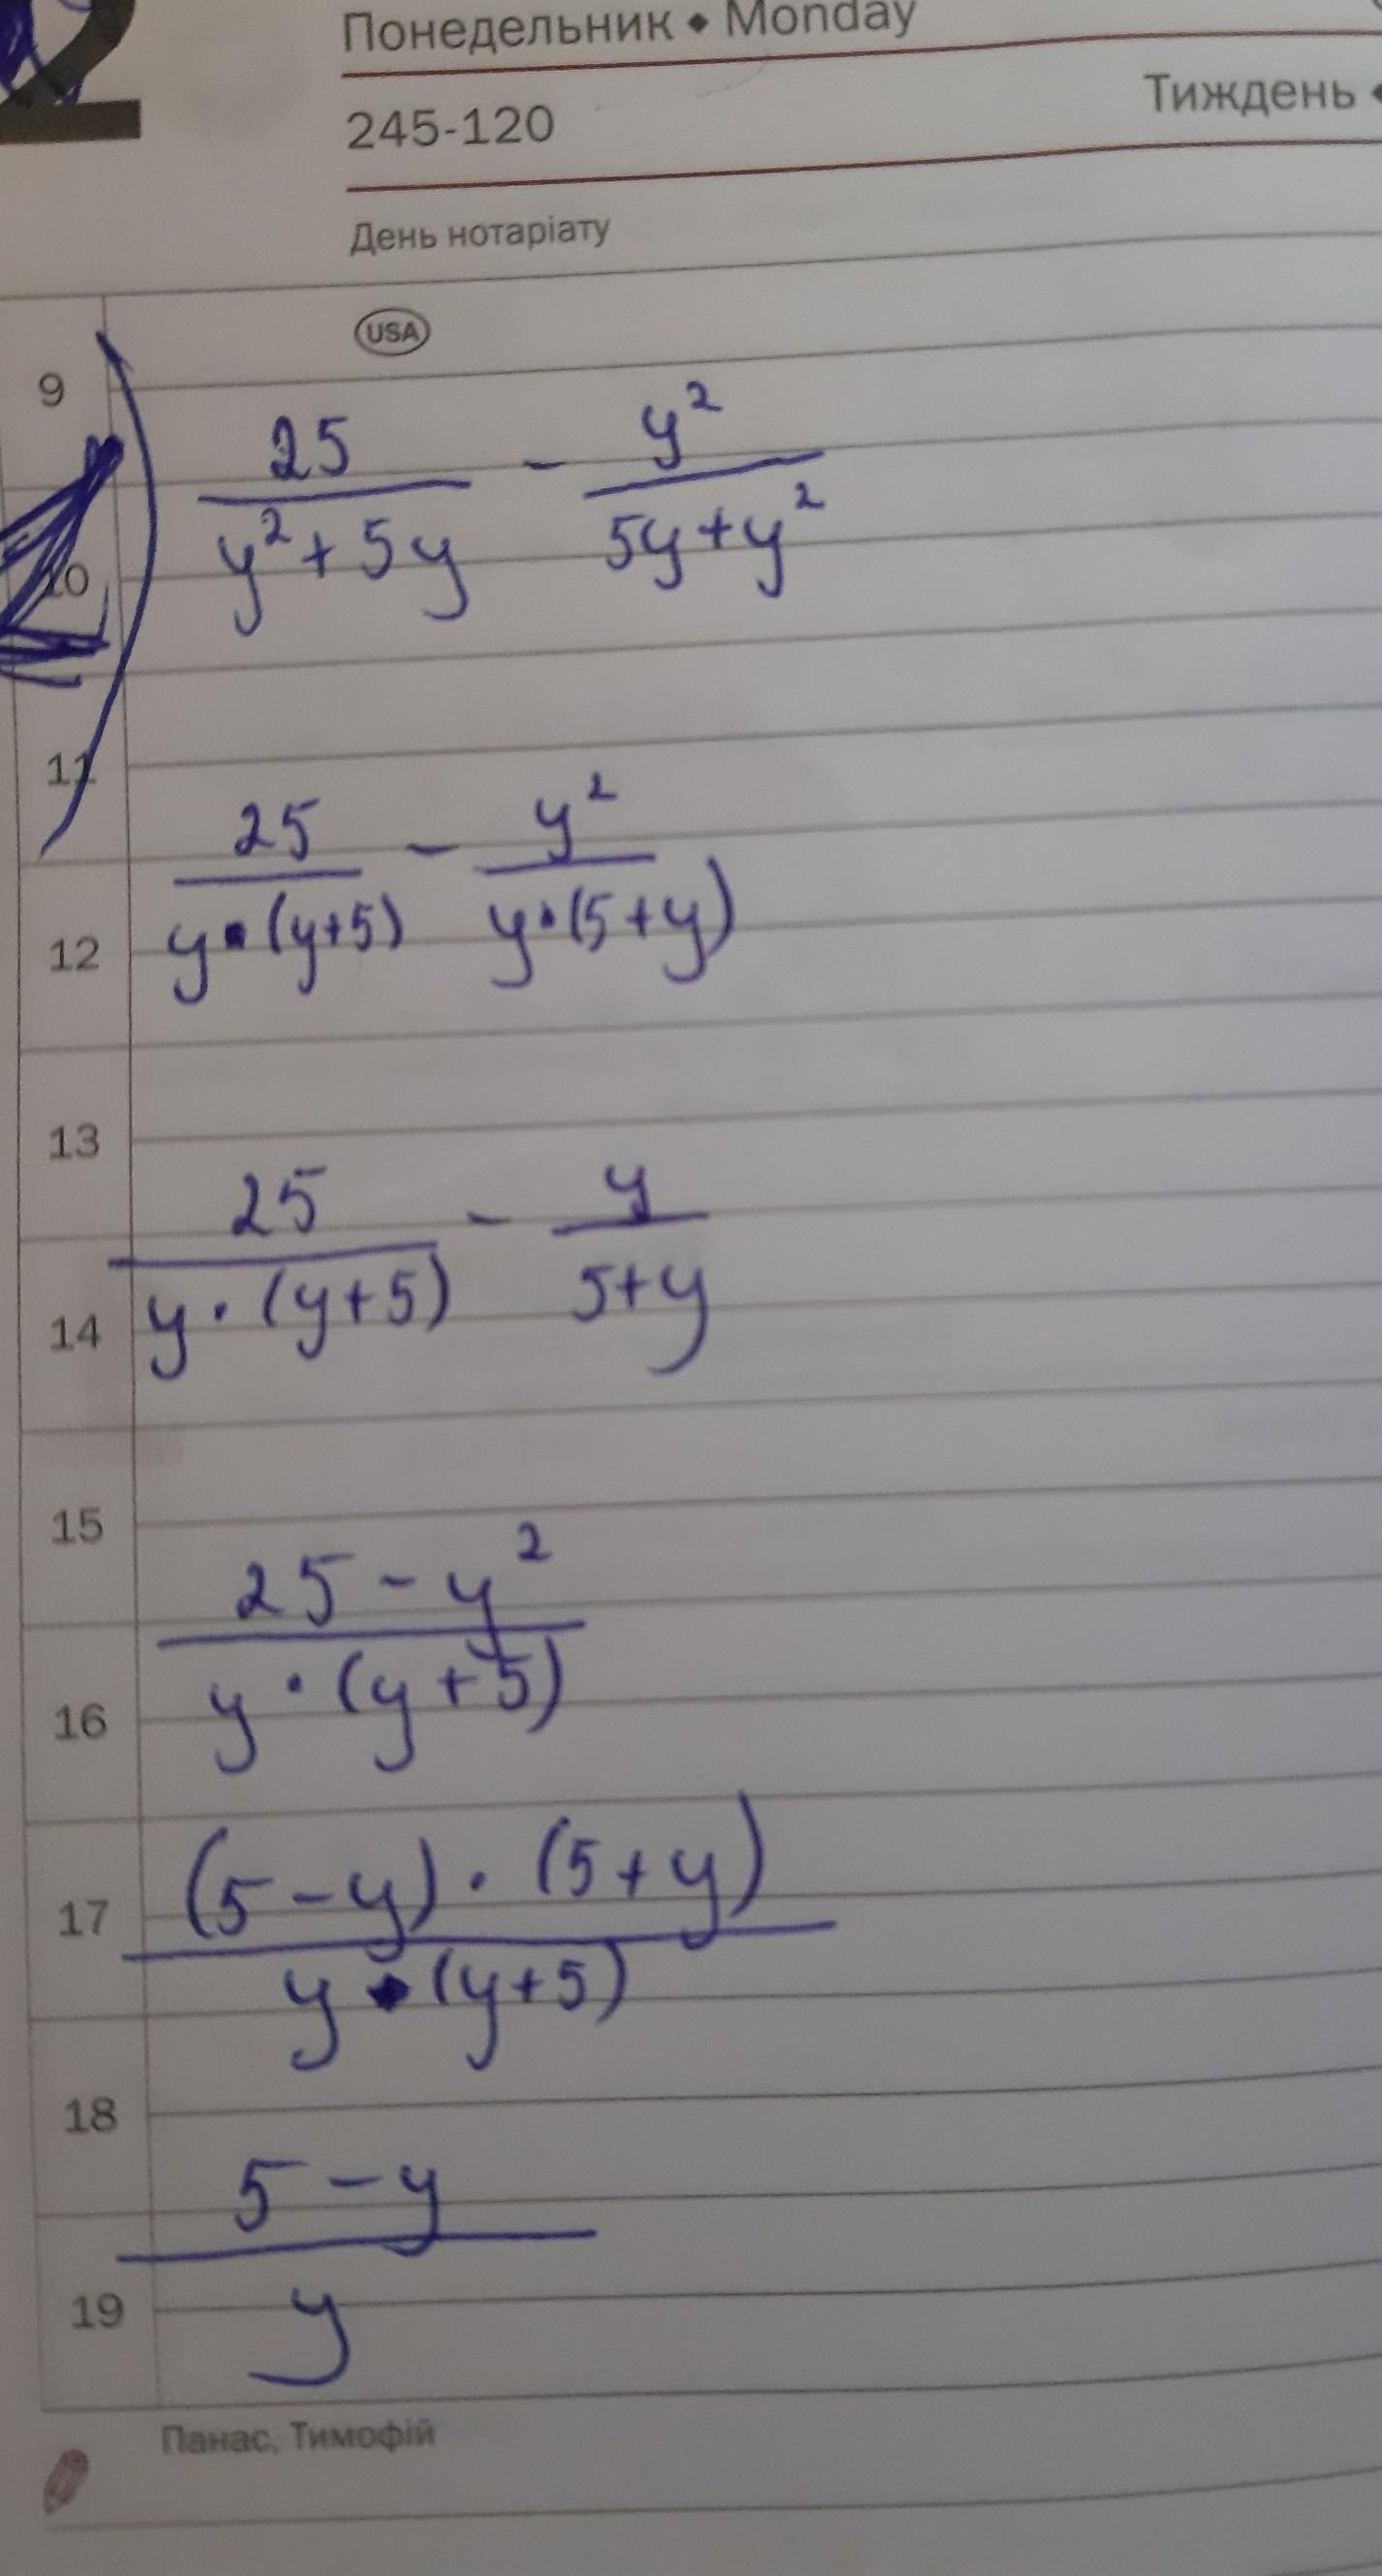 2
Понедельник ◆ Monday
245-120
Тиждень ◆
День нотаріату
USA
9
25 / (y² + 5y) - y² / (5y + y²)
10
11
25 / (y · (y+5)) - y² / (y · (5+y))
12
13
25 / (y · (y+5)) - y / (5+y)
14
15
(25 - y²) / (y · (y+5))
16
(5-y) · (5+y) / (y · (y+5))
17
18
(5 - y) / y
19
Панас, Тимофій